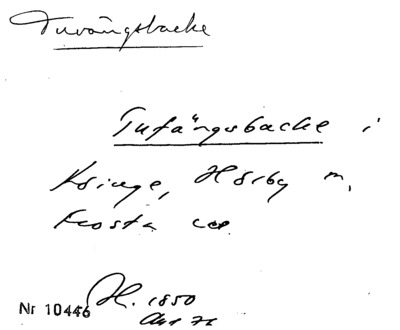 Tuvängsbacke
Tufängsbacke i
Ksinge, Hörby m,
Frosta
Nr 10446 H. 1850